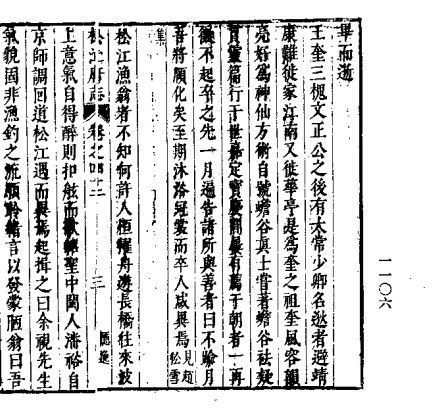 畢而逝
王奎三槐文正公之後有太常少卿名遫者避靖
康難徙家江南又徙華亭是爲奎之祖奎風容韻
亮好爲神仙方術自號蟾谷眞士嘗著蟾谷祛疑
貫靈篇行于世嘉定寶慶間屢有薦于朝者一再
徵不起卒之先一月過告諸所與善者曰不踰月
吾將願化矣至期沐浴冠裳而卒人咸異焉見趙松雪
集
松江漁翁者不知何許人恒櫂舟遊長橋往來波
松江府志 卷之四十二 三 隱逸
上意氣自得醉則扣舷而歌紹聖中閩人潘裕自
京師調回道松江遇而異焉起揖之曰余視先生
氣貌固非漁釣之流願聆緒言以發蒙陋翁曰吾
一一〇六